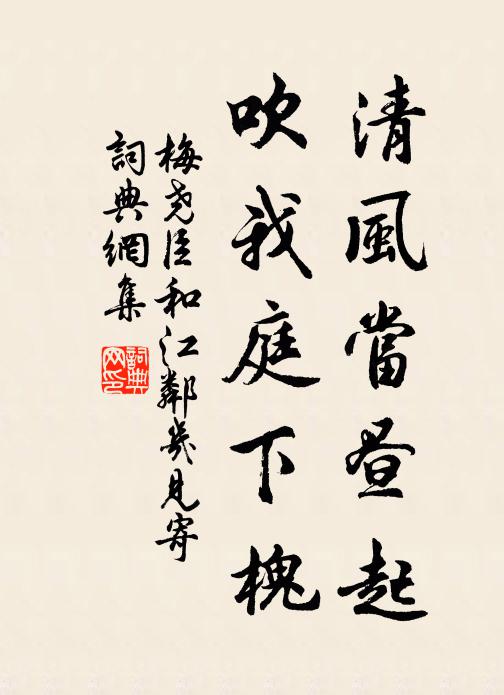 清風當昼起
吹我庭下槐
梅尧臣和江鄰幾見寄
詞典網集
詞典网印